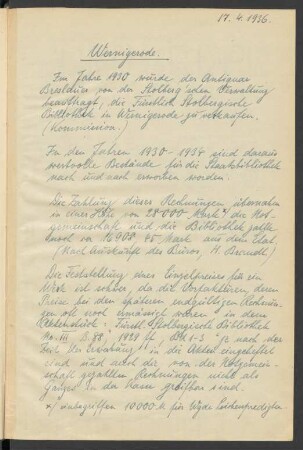 17. 4. 1936.
Wernigerode.
Im Jahre 1930 wurde der Antiquar
Breslauer von der Stolberg'schen Verwaltung
beauftragt, die Fürstlich Stolbergische
Bibliothek in Wernigerode zu verkaufen.
(Kommission.)
In den Jahren 1930 - 1934 sind daraus
wertvolle Bestände für die Staatsbibliothek
nach und nach erworben worden.
Die Zahlung dieser Rechnungen übernahm
in einer Höhe von 28 000 Mark *) die Not-
gemeinschaft und die Bibliothek
von 16908, 45 Mark aus dem Etat.
(Nach Auskunft des Büros, H. Berndt)
Die Feststellung eines Einzelpreises für ein
Werk ist schwer, da die
Preise bei den späteren endgültigen Rechnun-
gen oft noch ermässigt worden in dem
Aktenstück: Fürstl. Stolbergische Bibliothek
No. III B. 88, 1929 ff Bd 1-3 nach der
Zeit der Erwerbung in die Akten eingeheftet
sind und auch die von der Notgemein-
schaft gezahlten Rechnungen nicht als
Ganzes in der Kasse greifbar sind.
*) inbegriffen 10000 M für Leichenpredigten